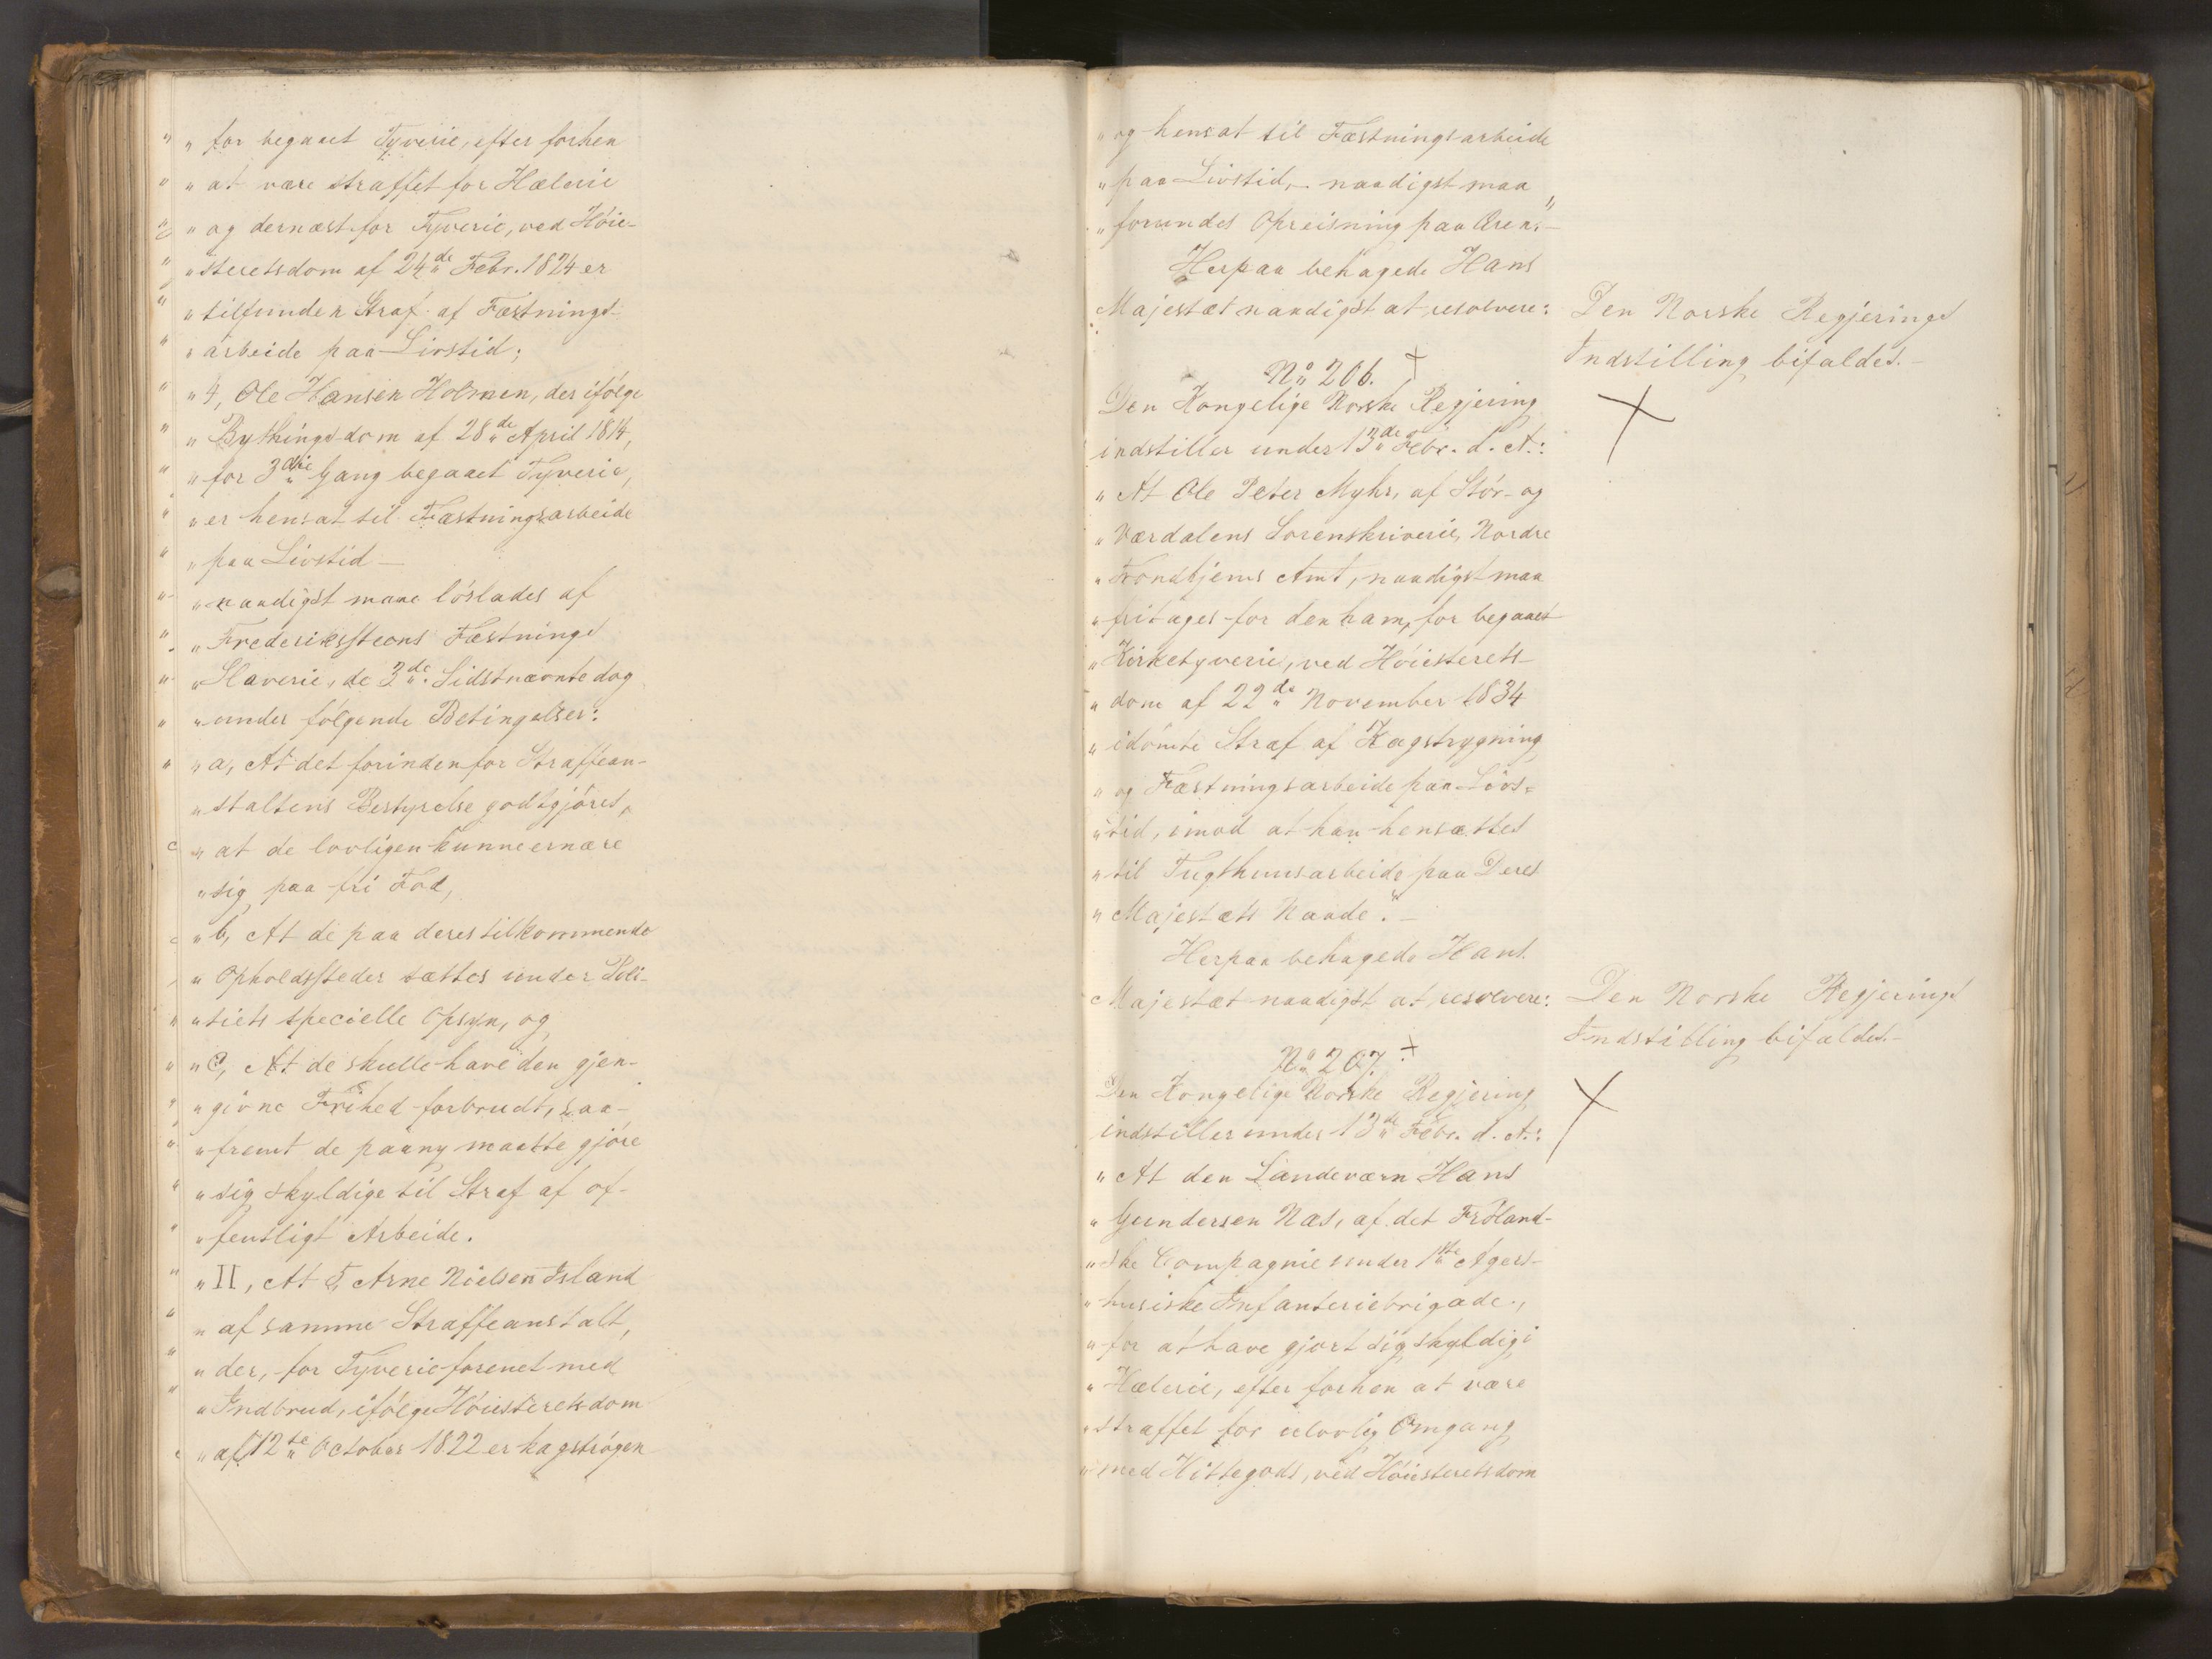 " " for begaaet Tyverie, efter forhen
" " at være straffet for Hæleri
" " og dernæst for Tyverie, ved Höie-
" " steretsdom af 24de Febr. 1824 er
" " tilfunden Straf af Fæstnings-
" " arbeide paa Livstid;
" " 4, Ole Hansen Holmen, der ifölge
" " Bythingsdom af 28de April 1814,
" " for 3die Gang begaaet Tyverie,
" " er hensat til Fæstningsarbeide
" " paa Livstid —
" " naadigst maae löslades af
" " Frederikssteens Fæstnings
" " Slaverie, de 3de Sidstnævnte dog
" " under fölgende Betingelser:
" " a, At det forinden for Straffean-
" staltens Bestyrelse godtgjöres,
" at de lovligen kunne ernære
" sig paa fri Fod,
" b, At de paa deres tilkommende
" Opholdssteder sættes under Poli-
" " tiets specielle Opsyn, og
" " c, At de skulle have den gjen-
" " givne Frihed forbrudt, saa-
" " fremt de paany maatte gjöre
" " sig skyldige til Straf af of-
" " fentligt Arbeide.
" " II, At F, Arne Nielsen Island
" " af samme Straffeanstalt,
" " der, for Tyverie forenet med
" " Indbrud, ifölge Höiesteretsdom
" af 12te October 1822 er kagströgen
" og hensat til Fæstningsarbeide
" paa Livstid, - naadigst maa
" forundes Opreisning paa Æren." —
Herpaa behagede Hans
Majestæt naadigst at resolvere:
Den Norske Regjerings
Indstilling bifaldes. —
No 206. +
Den Kongelige Norske Regjering
indstiller under 13de Febr. d. A.:
" At Ole Peter Myhr, af Stör- og
" Værdalens Sorenskriverie, Nordre
" Trondhjems Amt, naadigst maa
" fritages for den ham, for begaaet
" Kirketyverie, ved Höiesterets-
" dom af 22de November 1834
" idömte Straf af Kagstrygning
" og Fæstningsarbeide paa Livs-
" tid, imod at han hensættes
" til Tugthuusarbeide paa Deres
" Majestæts Naade". —
Herpaa behagede Hans
Majestæt naadigst at resolvere:
Den Norske Regjerings
Indstilling bifaldes. —
No 207. +
Den Kongelige Norske Regjering
indstiller under 13de Febr. d. A.:
" At den Landeværn Hans
" Gundersen Næs, af det Fröland-
" ske Compagnie under 1ste Agers-
" husiske Infanteriebrigade,
" for at have gjort sig skyldig i
" Hæleri, efter forhen at være
" straffet for ulovlig Omgang
" med Hittegods, ved Höiesteretsdom